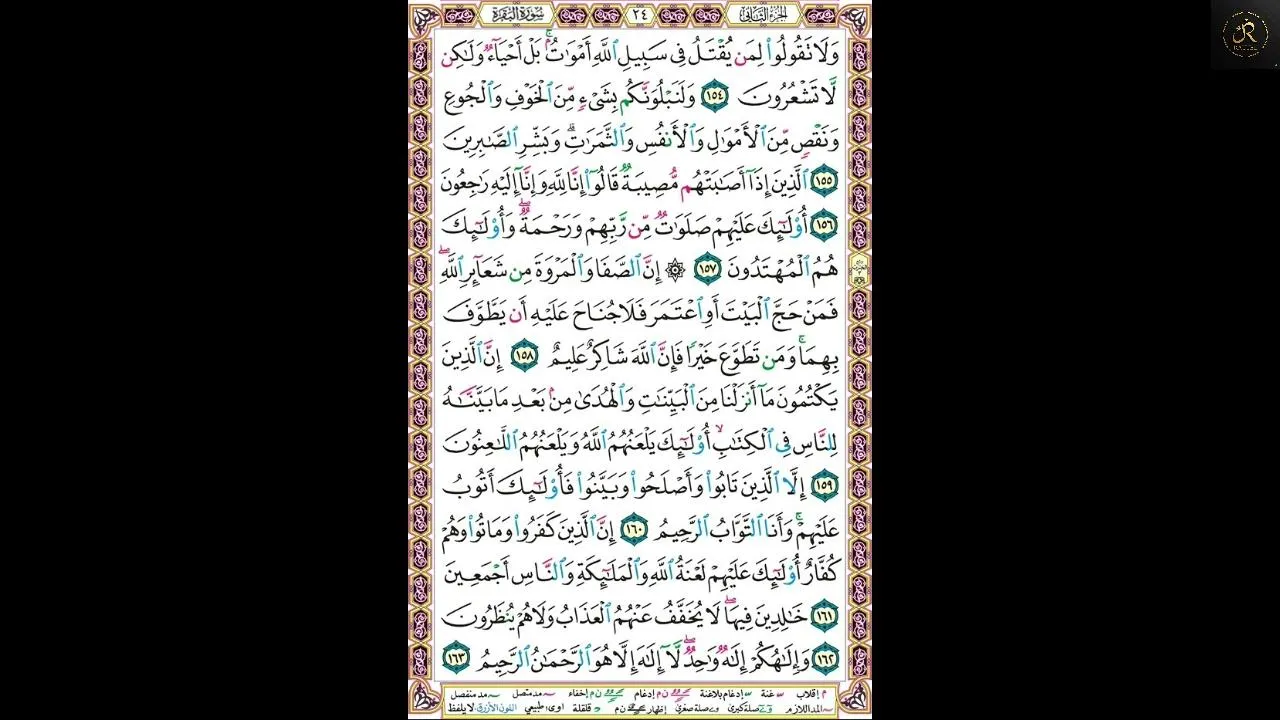 سُورَةُ البَقَرَةِ ٢٤ الجُزءُ الثَّانِي
وَلَا تَقُولُوا۟ لِمَن يُقْتَلُ فِى سَبِيلِ ٱللَّهِ أَمْوَٰتٌۢ ۚ بَلْ أَحْيَآءٌ وَلَٰكِن
لَّا تَشْعُرُونَ ١٥٤ وَلَنَبْلُوَنَّكُم بِشَىْءٍ مِّنَ ٱلْخَوْفِ وَٱلْجُوعِ
وَنَقْصٍ مِّنَ ٱلْأَمْوَٰلِ وَٱلْأَنفُسِ وَٱلثَّمَرَٰتِ ۗ وَبَشِّرِ ٱلصَّٰبِرِينَ
١٥٥ ٱلَّذِينَ إِذَآ أَصَٰبَتْهُم مُّصِيبَةٌ قَالُوٓا۟ إِنَّا لِلَّهِ وَإِنَّآ إِلَيْهِ رَٰجِعُونَ
١٥٦ أُو۟لَٰٓئِكَ عَلَيْهِمْ صَلَوَٰتٌ مِّن رَّبِّهِمْ وَرَحْمَةٌ ۖ وَأُو۟لَٰٓئِكَ
هُمُ ٱلْمُهْتَدُونَ ١٥٧ ۞ إِنَّ ٱلصَّفَا وَٱلْمَرْوَةَ مِن شَعَآئِرِ ٱللَّهِ ۖ
فَمَنْ حَجَّ ٱلْبَيْتَ أَوِ ٱعْتَمَرَ فَلَا جُنَاحَ عَلَيْهِ أَن يَطَّوَّفَ
بِهِمَا ۚ وَمَن تَطَوَّعَ خَيْرًا فَإِنَّ ٱللَّهَ شَاكِرٌ عَلِيمٌ ١٥٨ إِنَّ ٱلَّذِينَ
يَكْتُمُونَ مَآ أَنزَلْنَا مِنَ ٱلْبَيِّنَٰتِ وَٱلْهُدَىٰ مِنۢ بَعْدِ مَا بَيَّنَّٰهُ
لِلنَّاسِ فِى ٱلْكِتَٰبِ ۙ أُو۟لَٰٓئِكَ يَلْعَنُهُمُ ٱللَّهُ وَيَلْعَنُهُمُ ٱللَّٰعِنُونَ
١٥٩ إِلَّا ٱلَّذِينَ تَابُوا۟ وَأَصْلَحُوا۟ وَبَيَّنُوا۟ فَأُو۟لَٰٓئِكَ أَتُوبُ
عَلَيْهِمْ ۚ وَأَنَا ٱلتَّوَّابُ ٱلرَّحِيمُ ١٦٠ إِنَّ ٱلَّذِينَ كَفَرُوا۟ وَمَاتُوا۟ وَهُمْ
كُفَّارٌ أُو۟لَٰٓئِكَ عَلَيْهِمْ لَعْنَةُ ٱللَّهِ وَٱلْمَلَٰٓئِكَةِ وَٱلنَّاسِ أَجْمَعِينَ
١٦١ خَٰلِدِينَ فِيهَا ۖ لَا يُخَفَّفُ عَنْهُمُ ٱلْعَذَابُ وَلَا هُمْ يُنظَرُونَ
١٦٢ وَإِلَٰهُكُمْ إِلَٰهٌ وَٰحِدٌ ۖ لَّآ إِلَٰهَ إِلَّا هُوَ ٱلرَّحْمَٰنُ ٱلرَّحِيمُ ١٦٣
م إقلاب غنة إدغام بلاغنة ن م إدغام ن م إخفاء مد متصل مد منفصل
المد اللازم صلة كبرى صلة صغرى إظهار ن م قلقلة اوى: طبيعي اللون الأزرق لا يلفظ
R